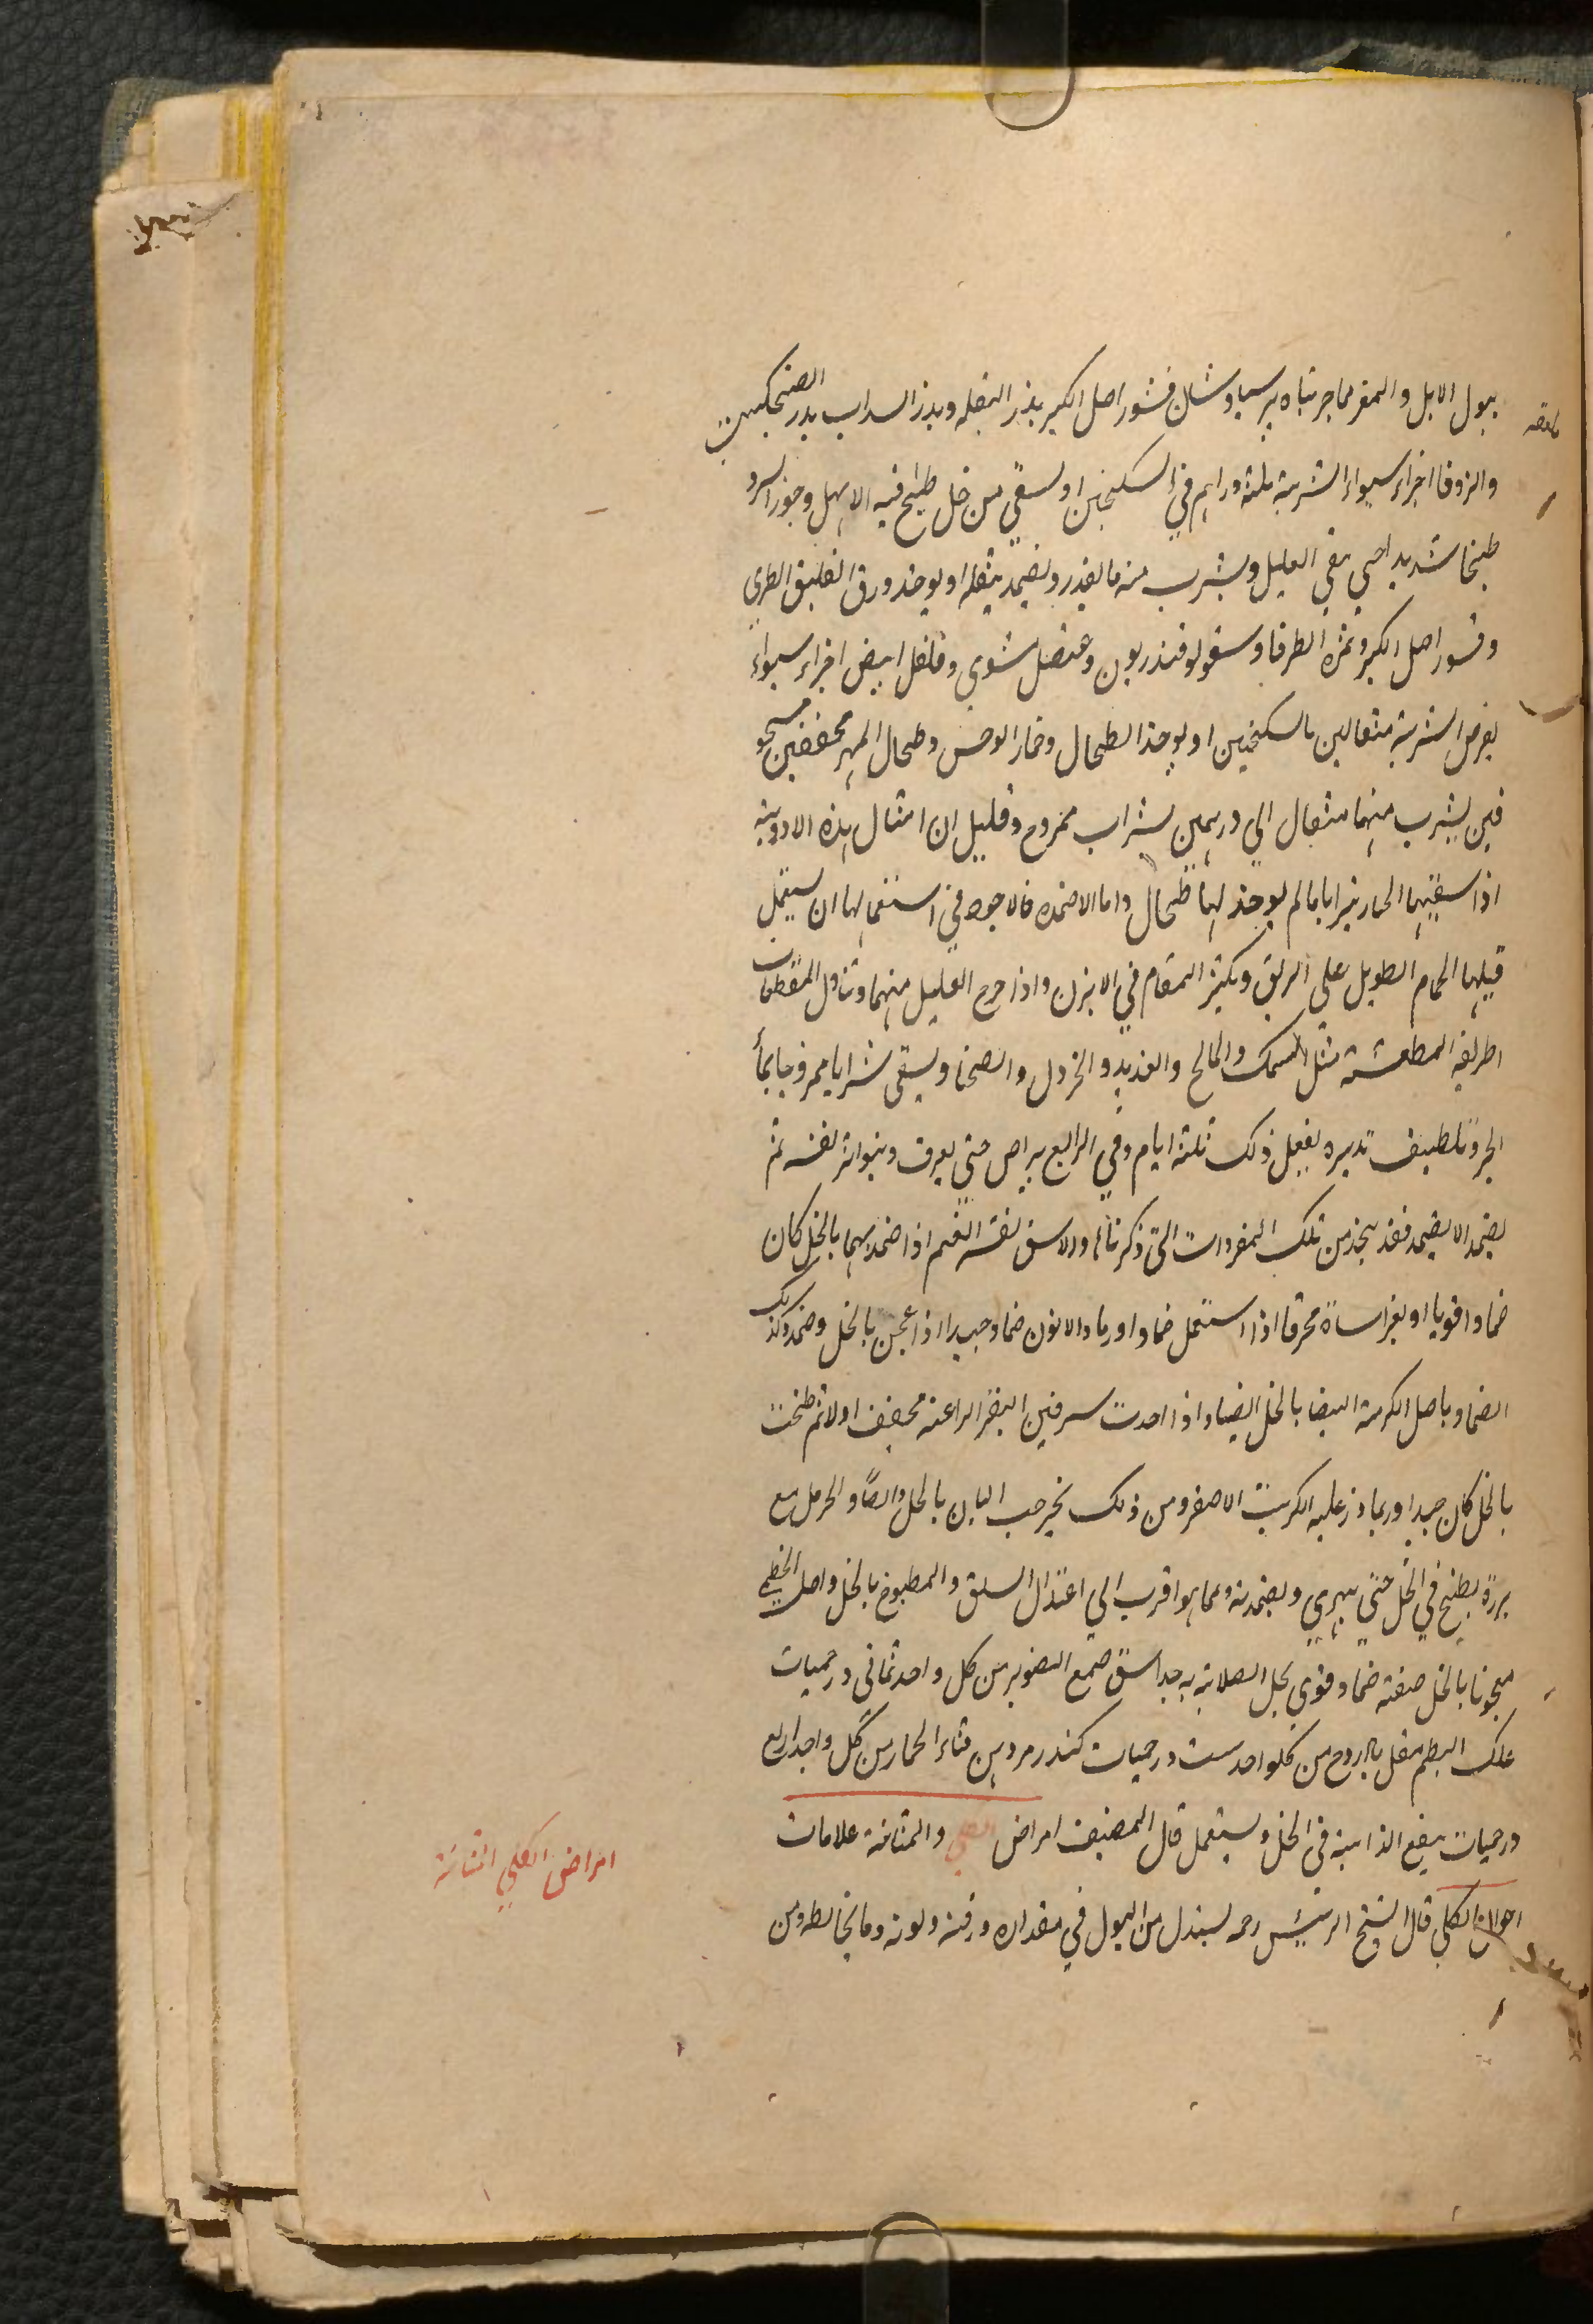 ببول الابل والمغر مما جربناه برسياوشان قشور اصل الكبر بذر البقله وبذر السداب بدر الفنجنكشت
والزوفا اجزاء سواء الشربة ثلثة دراهم في السكنجبين او يسقي من خل طبخ فيه الابهل وجوز السرو
طبخا شديدا حتي يبقي القليل ويشرب منه ما يقدر ويضمد بثفله او يوخذ ورق العليق الطري
وقشور اصل الكبر وثمرة الطرفا وسقولوقندريون وعنصل مشوي وفلفل ابيض اجزاء سواء
يقرص الشربة مثقالين بالسكنجبين او يوخذ الطحال وحمار الوحش وطحال المهر مجففين مسحو
قين يشرب منهما مثقال الي درهمين بشراب ممزوج وقليل ان امثال هذه الادوية
اذا سقيتها الخنازير اياما لم يوجد لها طحال واما الاضمده فالاجود في استعمالها ان يستعمل
قبلها الحمام الطويل علي الريق ويكثر المقام في الابزن واذا خرج العليل منهما وتناول المقطعات
الحريفه المعطشة مثل السمك والمالح والقديد والخردل والصحنا ويسقي شرابا ممزوجا بماء
البحر وتلطيف تدبيره يفعل ذلك ثلثة ايام وفي الرابع يراض حتي يعرق ويتواتر نفسه ثم
يضمد الا يضمد فقد يتخذ من تلك المفردات التي ذكرناها والاشق نفسه الفهم اذا ضمد بهما بالخل كان
ضمادا قويا او بعر الشاة محرقا اذا استعمل ضمادا ورماد الاتون ضماد جيدا اذا عجن بالخل وضمد وكذلك
الضماد باصل الكرمة البيضا بالخل ايضا واذا اخذت سرقين البقر الراعية مجفف اولا ثم طبخت
بالخل كان جيدا وربما ذر عليه الكبريت الاصفر ومن ذلك خير حب البان بالخل وايضا والحرمل مع
بزره يطبخ في الخل حتي يتهري ويضمد به ومما هو اقرب الي اعتدال السلق والمطبوخ بالخل واصل الخطمي
معجونا بالخل صفته ضماد قوي يحل الصلابة به جدا اشق صمغ الصنوبر من كل واحد ثماني درخميات
علك البطم مقل بارزد من كلواحد ست درخميات كندر مر دهن قثاء الحمار من كل واحد اربع
درخميات ينقع الذايبة في الخل ويستعمل قال المصنف امراض الكلي والمثانة علامات
احوال الكلي قال الشيخ الرئيس رحمه يستدل من البول في مقداره ورقته ولونه وما يخالطه ومن
امراض الكلي المثانة